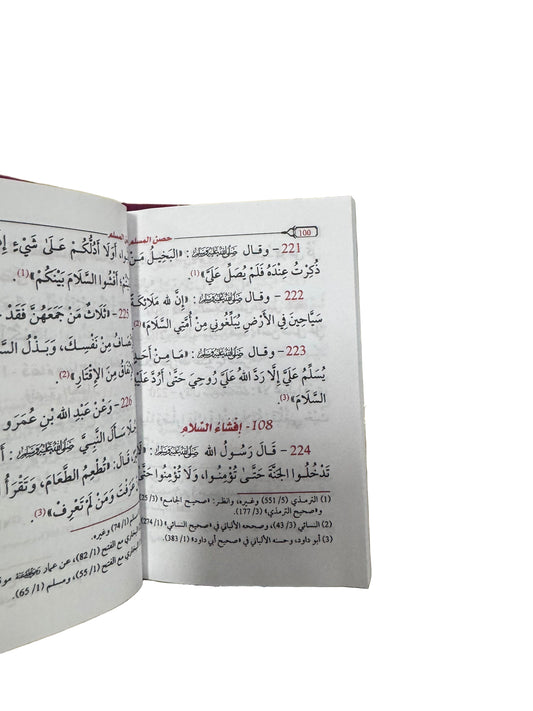 100
حصن المسلم
221 – وقال ﷺ : «البَخِيلُ مَنْ
ذُكِرْتُ عِنْدَهُ فَلَمْ يُصَلِّ عَلَيَّ»(1).
222 – وقال ﷺ : «إِنَّ لله مَلَائِكَةً
سَيَّاحِينَ فِي الأَرْضِ يُبَلِّغُونِي مِنْ أُمَّتِي السَّلَامَ»(2)
223 – وقال ﷺ : «مَا مِنْ أَحَدٍ
يُسَلِّمُ عَلَيَّ إِلَّا رَدَّ اللهُ عَلَيَّ رُوحِيَ حَتَّى أَرُدَّ عَلَيْهِ
السَّلَامَ»(3).
108- إفشاء السلام
224 – قَالَ رَسُولُ الله ﷺ :
تَدْخُلُوا الجَنَّةَ حَتَّى تُؤْمِنُوا، وَلَا تُؤْمِنُوا حَتَّى
(1) الترمذي (5/ 551) وغيره، وانظر: «صحيح الجامع» (3/ 25)
و«صحيح الترمذي» (3/ 177).
(2) النسائي (3/ 43)، وصححه الألباني في «صحيح النسائي» (1/ 274)
(3) أبو داود، وحسنه الألباني في «صحيح أبي داود» (1/ 383).
المسلم
أَوَلَا أَدُلُّكُمْ عَلَى شَيْءٍ
أَفْشُوا السَّلَامَ بَيْنَكُمْ»(1).
225 – «ثَلَاثٌ مَنْ جَمَعَهُنَّ فَقَدْ
مِنْ نَفْسِكَ، وَبَذْلُ
مِنَ الإِقْتَارِ»(2).
226 – وَعَنْ عَبْدِ الله بْنِ عُمَرٍو
سَأَلَ النَّبِيَّ ﷺ :
قَالَ: «تُطْعِمُ الطَّعَامَ، وَتَقْرَأُ
عَرَفْتَ وَمَنْ لَمْ تَعْرِفْ»(3).
(1/ 74) وغيره.
مع الفتح (1/ 82)، عن عمار
مع الفتح (1/ 55)، ومسلم (1/ 65).